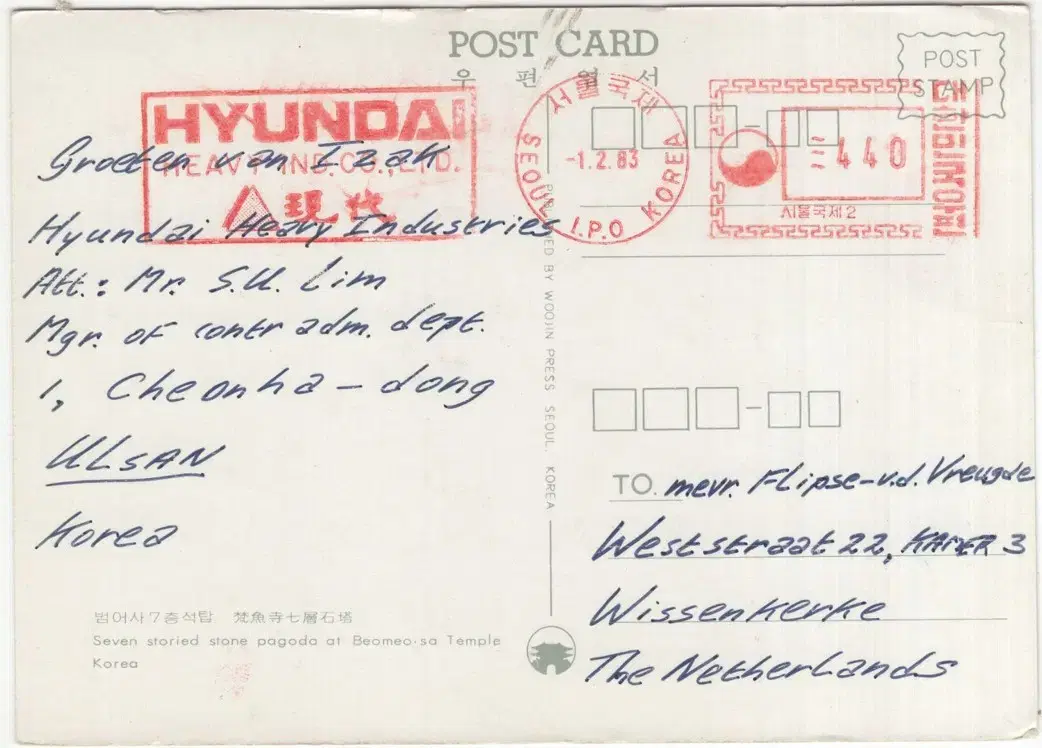 POST CARD
우 편 엽 서
POST
STAMP
HYUNDAI
HEAVY IND. CO., LTD.
現代
서울국제
SEOUL I.P.O KOREA
-1.2.83
440
서울국제2
Groeten van Izaak
Hyundai Heavy Industries
Att.: Mr. S.U. Lim
Mgr. of contr adm. dept.
1, Cheonha-dong
ULSAN
Korea
BY WOOJIN PRESS SEOUL. KOREA
TO. mevr. Flipse-v.d. Vreugde
Weststraat 22, KAMER 3
Wissenkerke
The Netherlands
범어사7층석탑 梵魚寺七層石塔
Seven storied stone pagoda at Beomeo-sa Temple
Korea